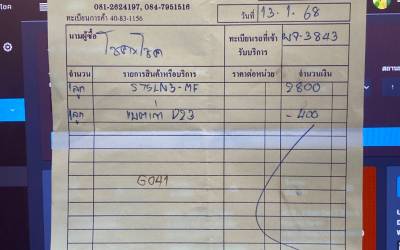 081-2624197, 084-7951516
ทะเบียนการค้า 40-83-1156
วันที่ 13. 1. 68
นามผู้ซื้อ โชคนำโชค
ทะเบียนรถที่เข้ารับบริการ 3843
จำนวน รายการสินค้าหรือบริการ ราคาต่อหน่วย จำนวนเงิน
1ลูก S95LN3-MF 2800
1ลูก แบตเก่า D23 -400
G041